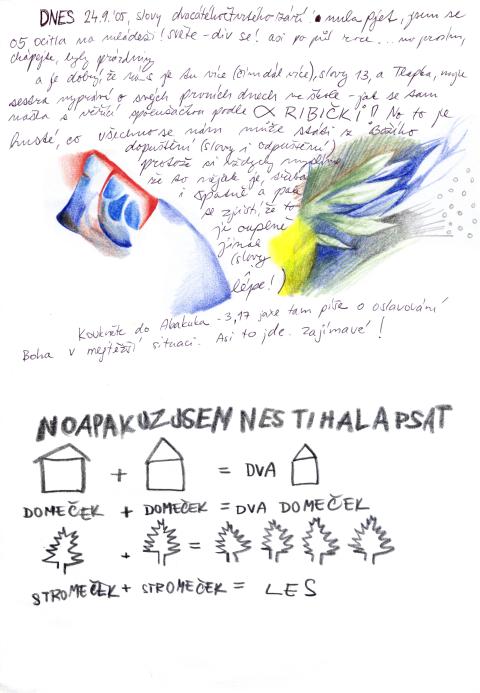 DNES 24.9.'05, slovy dvacátéhočtvrtého září nula pjet, jsem se
05 ocitla na mládeži! světe - div se! asi po půl roce ... no prosím,
chápejte, byly prázdniny
a je dobrý, že nás je tu více (čím dál více), slovy 13, a Tlapka, moje
sestra vypráví o svých prvních dnech ve škole - jak se tam
našla s věřící spolužačkou podle RIBIČKI! No to je
husté, co všechno se nám může stát z Božího
dopuštění (slovy i odpuštění)
protože si vždycky myslíme
že to nějak je,
i špatně a pak
se zjistí, že to
je ouplně
jinak
(slovy
lépe!)
Koukněte do Abakuka - 3,17 jaxe tam píše o oslavování
Boha v nejtěžší situaci. Asi to jde. zajímavé!
NOAPAKUZJSEM NESTIHALAPSAT
+ = DVA
DOMEČEK + DOMEČEK = DVA DOMEČEK
+ =
STROMEČEK + STROMEČEK = LES